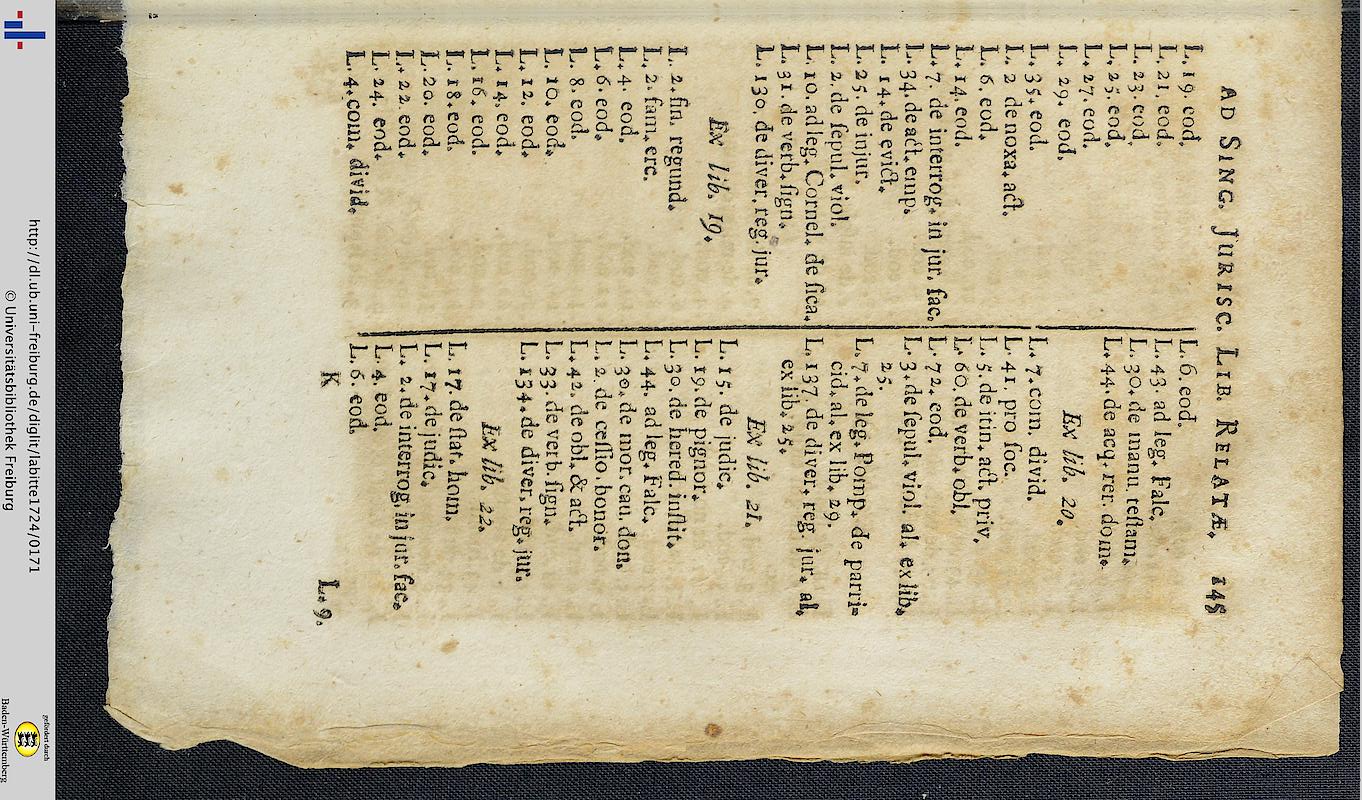 AD SING. JURISC. LIB. RELATÆ. 145
L. 19. eod.
L. 21. eod.
L. 23. eod.
L. 25. eod.
L. 27. eod.
L. 29. eod.
L. 35. eod.
L. 2 de noxa. act.
L. 6. eod.
L. 14. eod.
L. 7. de interrog. in jur. fac.
L. 34. de act. emp.
L. 14. de evict.
L. 25. de injur.
L. 2. de sepul. viol.
L. 10. ad leg. Cornel. de sica.
L. 31. de verb. sign.
L. 130. de diver. reg. jur.
Ex lib. 19.
L. 2. fin. regund.
L. 2. fam. erc.
L. 4. eod.
L. 6. eod.
L. 8. eod.
L. 10. eod.
L. 12. eod.
L. 14. eod.
L. 16. eod.
L. 18. eod.
L. 20. eod.
L. 22. eod.
L. 24. eod.
L. 4. com. divid.
L. 6. eod.
L. 43. ad leg. Falc.
L. 30. de manu. testam.
L. 44. de acq. rer. dom.
Ex lib. 20.
L. 7. com. divid.
L. 41. pro soc.
L. 5. de itin. act. priv.
L. 60. de verb. obl.
L. 72. eod.
L. 3. de sepul. viol. al. ex lib.
25.
L. 7. de leg. Pomp. de parri-
cid. al. ex lib. 29.
L. 137. de diver. reg. jur. al.
ex lib. 25.
Ex lib. 21.
L. 15. de judic.
L. 19. de pignor.
L. 30. de hered. instit.
L. 44. ad leg. Falc.
L. 30. de mor. cau. don.
L. 2. de cessio. bonor.
L. 42. de obl. & act.
L. 33. de verb. sign.
L. 134. de diver. reg. jur.
Ex lib. 22.
L. 17. de stat. hom.
L. 17. de judic.
L. 2. de interrog. in jur. fac.
L. 4. eod.
L. 6. eod.
K L. 9.
http://dl.ub.uni-freiburg.de/diglit/labitte1724/0171
© Universitätsbibliothek Freiburg
gefördert durch
Baden-Württemberg